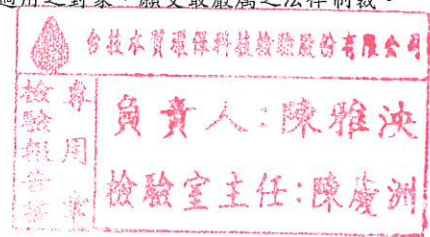 適用之對象，願受最嚴厲之法律制裁。
台技水質環保科技檢驗股份有限公司
檢驗報告書
專用章
負責人：陳雅泱
檢驗室主任：陳慶洲